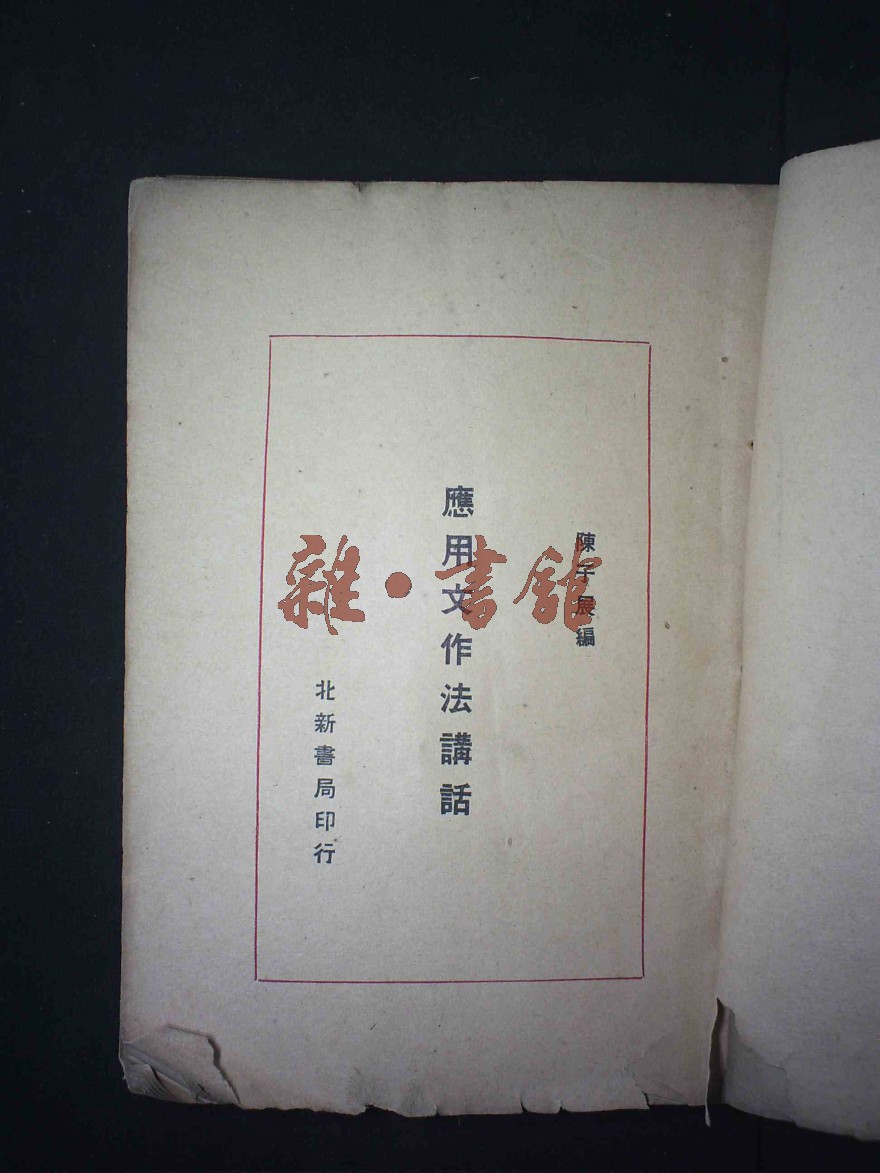 陳子展編
應用文作法講話
北新書局印行
雜·書館